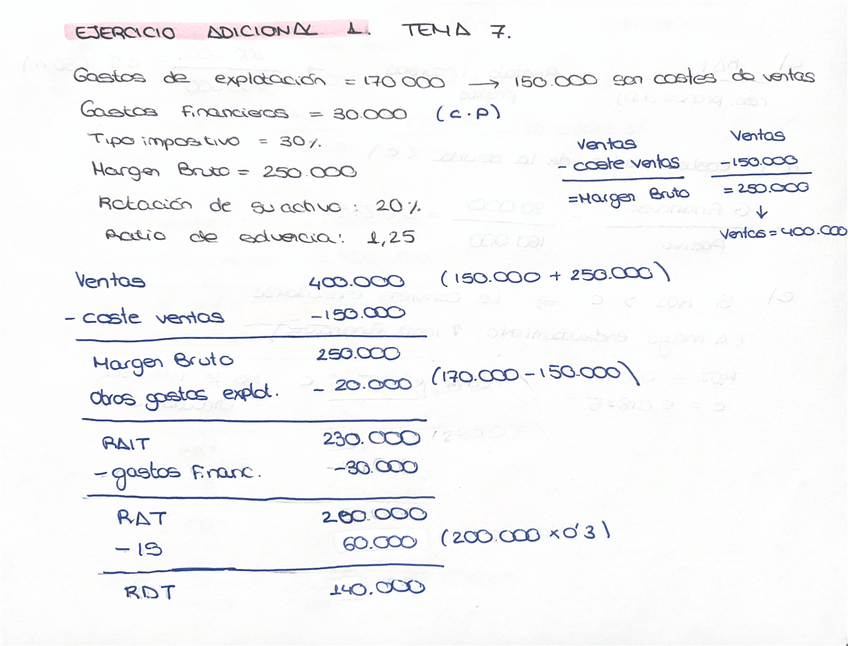 EJERCICIO ADICIONAL 1. TEMA 7.
Gastos de explotación = 170.000 → 150.000 son costes de ventas
Gastos financieros = 30.000 (C.P)
Tipo impositivo = 30%
Margen Bruto = 250.000
Rotación de su activo: 20%
Ratio de solvencia: 1,25
Ventas
- coste ventas
= Margen Bruto
Ventas
-150.000
= 250.000
↓
Ventas = 400.000
Ventas 400.000 (150.000 + 250.000)
- coste ventas -150.000
Margen Bruto 250.000
otros gastos explot. - 20.000 (170.000 - 150.000)
RAIT 230.000
- gastos financ. -30.000
RAT 200.000
- IS 60.000 (200.000 x 0'3)
RDT 140.000